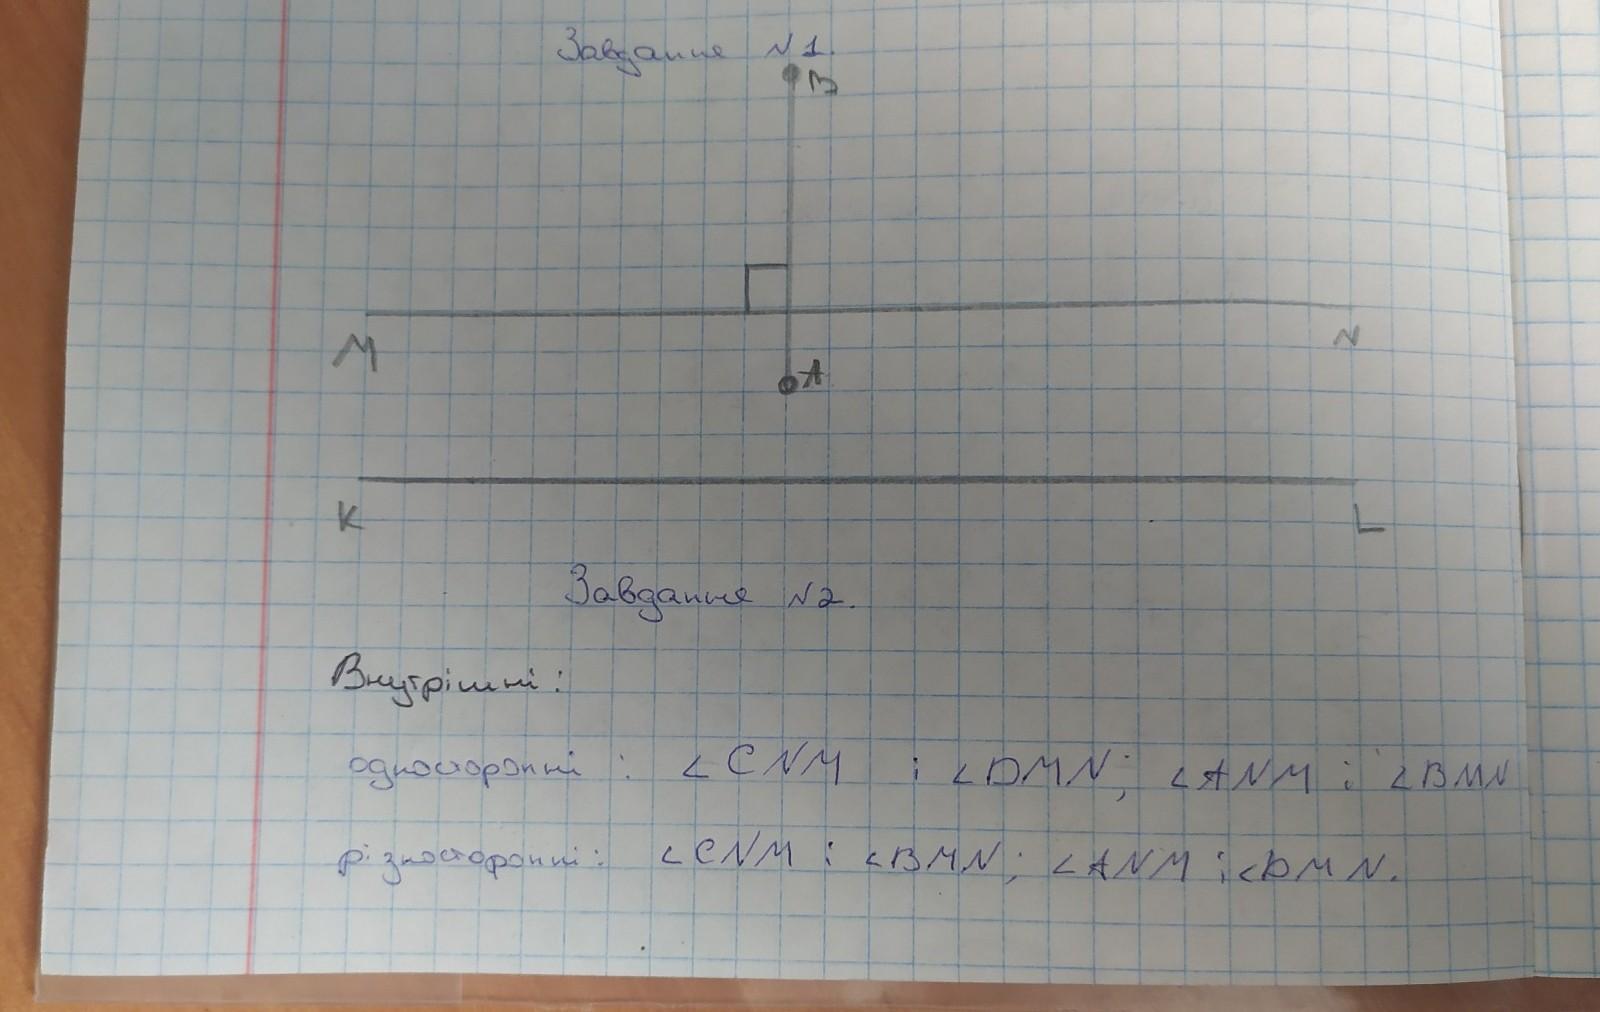 Завдання №1.
B
M
N
A
K
L
Завдання №2.
Внутрішні:
односторонні : ∠CNM і ∠DMN; ∠ANM і ∠BMN
різносторонні: ∠CNM і ∠BMN; ∠ANM і ∠DMN.